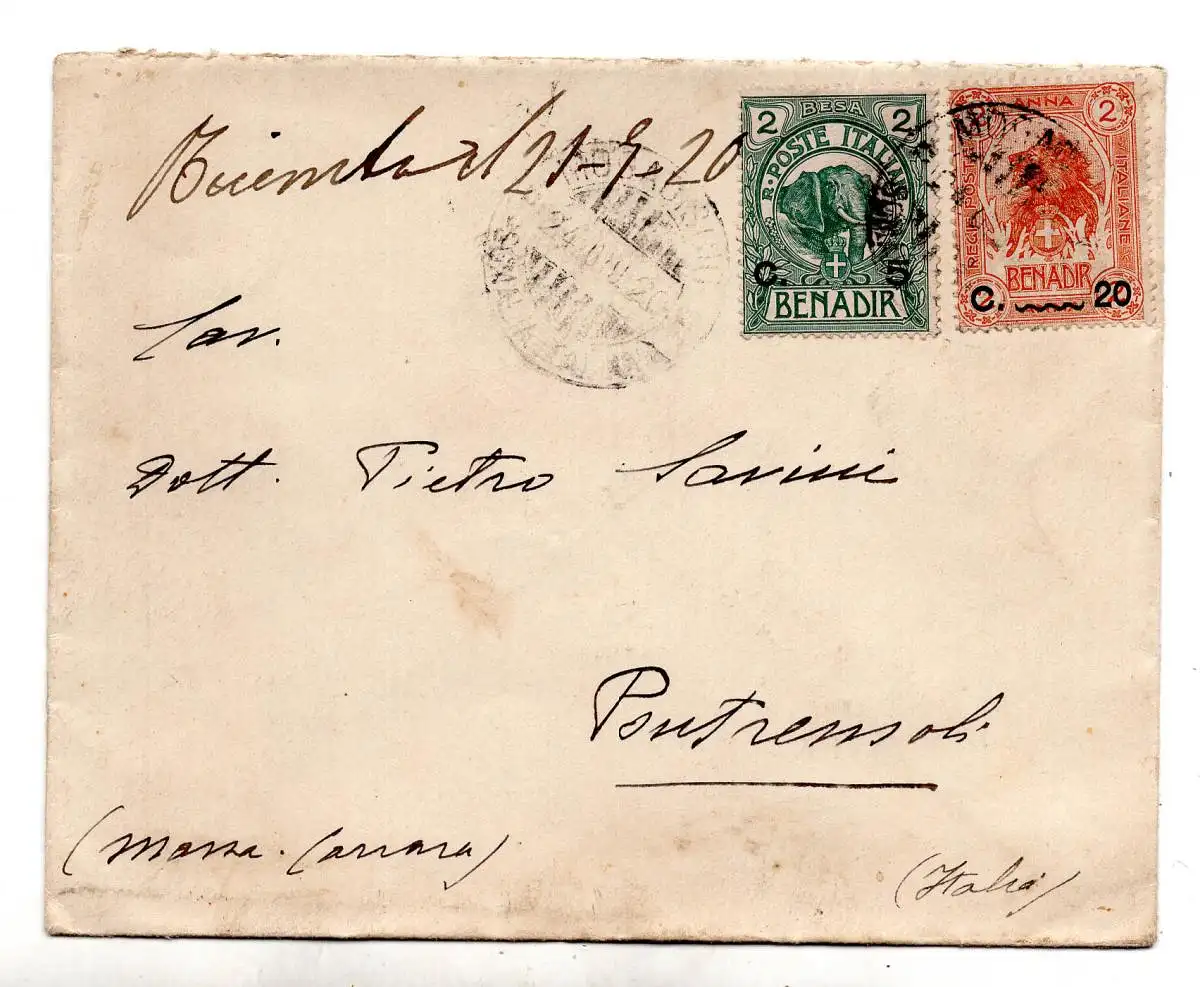 2 BESA 2
R. POSTE ITALIANE
C. 5
BENADIR
ANNA 2
REGIE POSTE ITALIANE
BENADIR
C. 20
21 9 20
Cav.
Dott. Pietro Savini
Pontremoli
(Massa. Carrara)
(Italia)